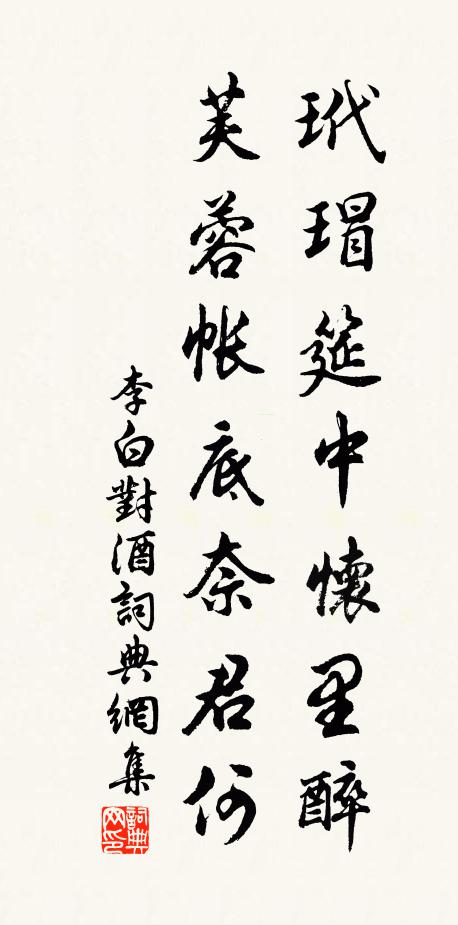 玳瑁筵中懷里醉
芙蓉帳底奈君何
李白對酒詞典網集
詞典网印